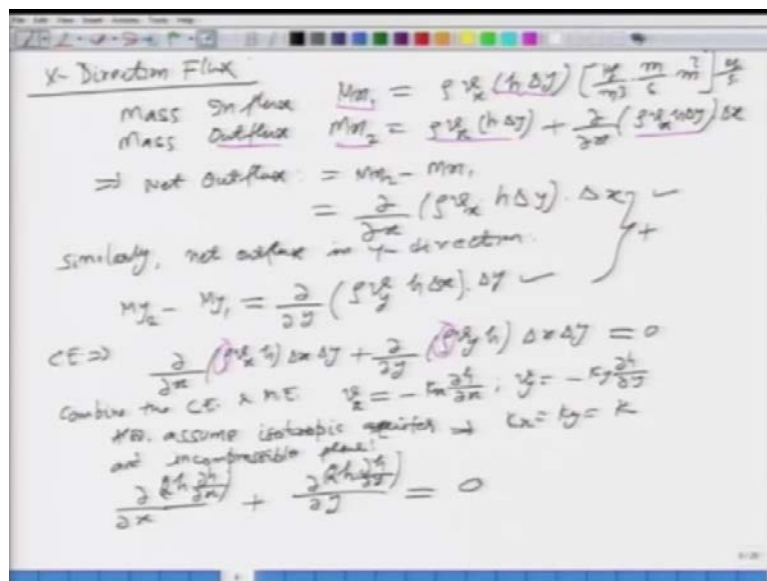 File Edit View Insert Actions Tools Help
X-Direction Flux
Mass Influx Mx₁ = ρ vₓ (h Δy) [kg/m³ · m/s · m²] kg/s
Mass Outflux Mx₂ = ρ vₓ (h Δy) + ∂/∂x (ρ vₓ h Δy) Δx
⇒ Net Outflux = Mx₂ - Mx₁
= ∂/∂x (ρ vₓ h Δy) · Δx ✓
+
Similarly, net outflux in y-direction.
My₂ - My₁ = ∂/∂y (ρ v_y h Δx) · Δy ✓
CE ⇒ ∂/∂x (ρ vₓ h) Δx Δy + ∂/∂y (ρ v_y h) Δx Δy = 0
Combine the CE & ME vₓ = - Kx ∂h/∂x ; v_y = - Ky ∂h/∂y
assume isotropic aquifer ⇒ Kx = Ky = K
and incompressible
∂(h ∂h/∂x)/∂x + ∂(h ∂h/∂y)/∂y = 0